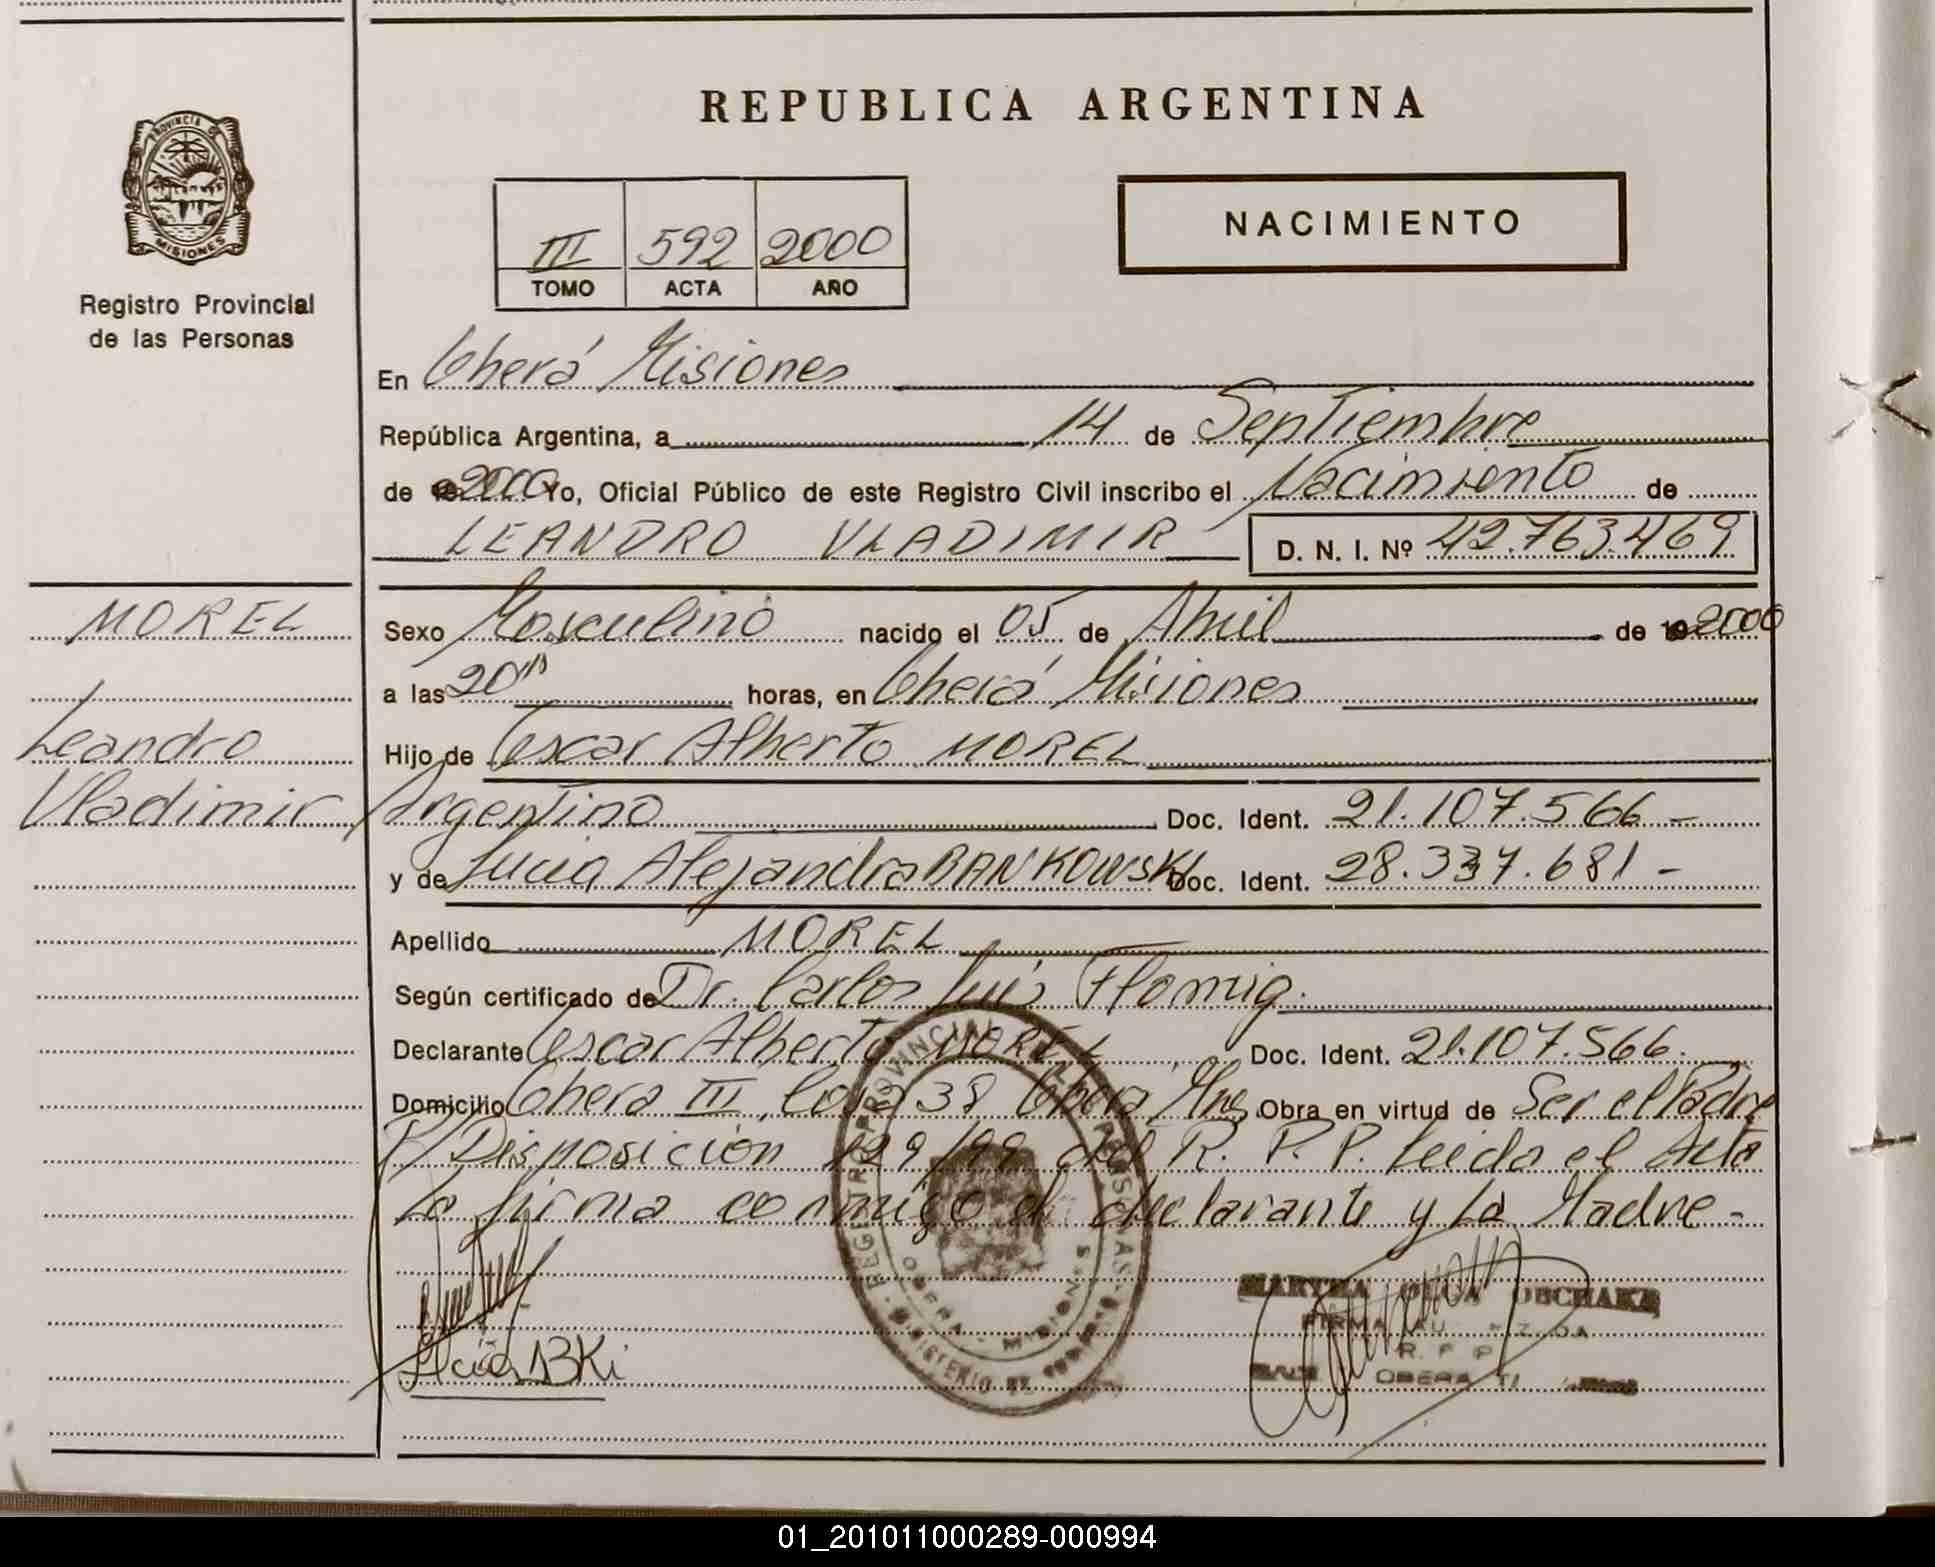 REPUBLICA ARGENTINA
PROVINCIA DE
MISIONES
Registro Provincial
de las Personas
III 592 2000
TOMO ACTA AÑO
NACIMIENTO
En Oberá Misiones
República Argentina, a 14 de Septiembre
de 2000 Yo, Oficial Público de este Registro Civil inscribo el Nacimiento de
LEANDRO VLADIMIR D. N. I. Nº 42.763.469
MOREL
Leandro
Vladimir
Sexo Masculino nacido el 05 de Abril de 2000
a las 20 horas, en Oberá Misiones
Hijo de Oscar Alberto MOREL
Argentino Doc. Ident. 21.107.566 -
y de Lucia Alejandra BANKOWSKI Doc. Ident. 28.337.681 -
Apellido MOREL
Según certificado de Dr. Carlos Luis
Declarante Oscar Alberto MOREL Doc. Ident. 21.107.566.
Domicilio Obera III, Casa 38 Obera Mnes Obra en virtud de Ser el Padre
P/Disposición 129/99 del R. P. P. Leida el Acta
La firma conmigo el declarante y La Madre -
REGISTRO PROVINCIAL DE LAS PERSONAS
OBERA - MISIONES
MINISTERIO DE
Lucia BKi
OBCHAKZ
FIRMA AUTORIZADA
R. P. P.
OBERA
01_201011000289-000994